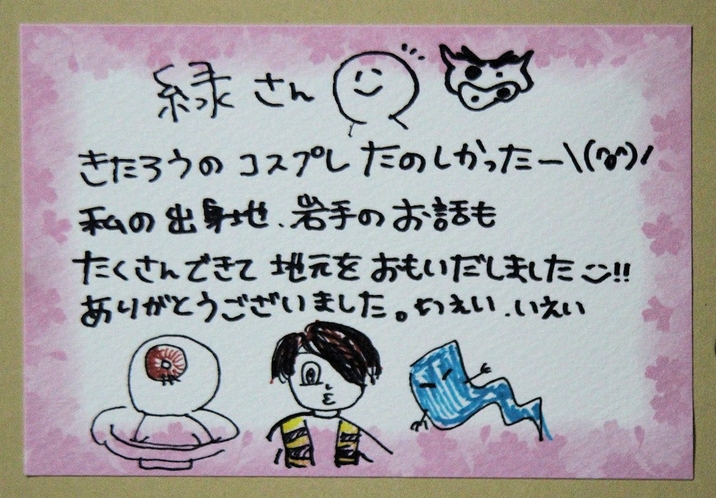 緑さん
きたろうの コスプレ たのしかったー\(^o^)/
私の出身地、岩手のお話も
たくさんできて 地元を おもいだしました!!
ありがとうございました。いえい、いえい